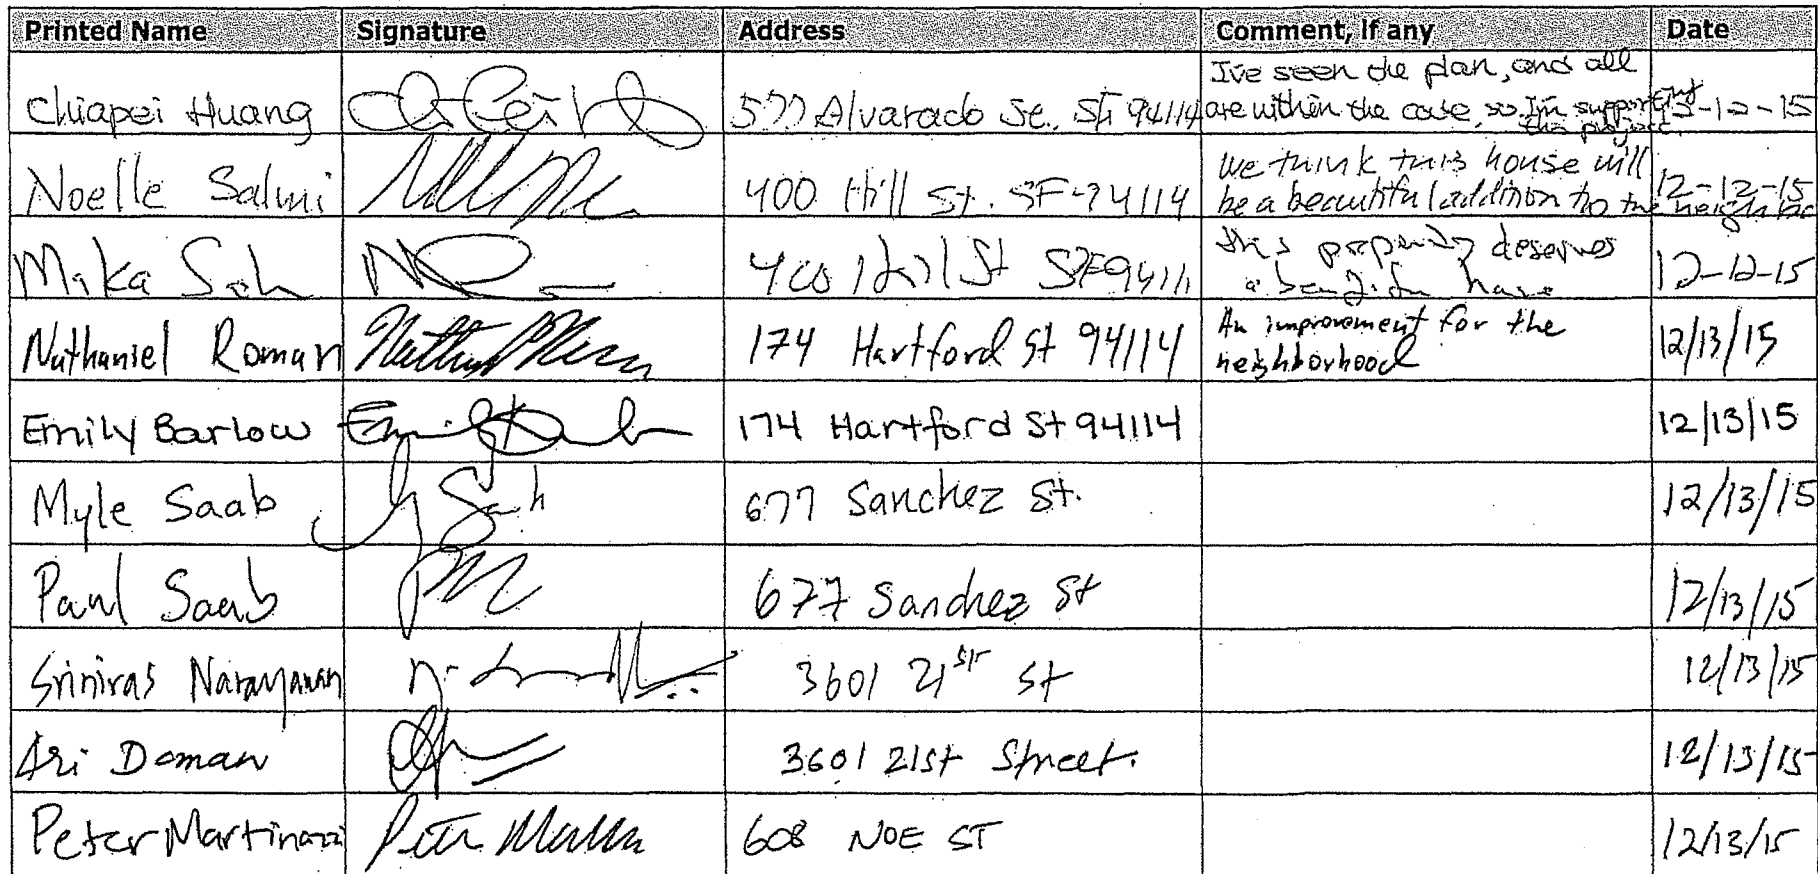 Printed Name Signature Address Comment, If any Date
I've seen the plan, and all
Chiapei Huang 577 Alvarado St. SF 94114 are within the code, so I'm supporting 12-15
the project.
Noelle Salmi 400 Hill St. SF 94114 We think this house will 12-12-15
be a beautiful addition to the
Mika 400 Hill St SF 9411 this property deserves 12-12-15
a
Nathaniel Roman 174 Hartford St 94114 An improvement for the 12/13/15
neighborhood
Emily Barlow 174 Hartford St 94114 12/13/15
Myle Saab 677 Sanchez St. 12/13/15
Paul Saab 677 Sanchez St 12/13/15
Srinivas Narayanan 3601 21st St 12/13/15
Ari Doman 3601 21st Street. 12/13/15
Peter Martinazzi 608 NOE ST 12/13/15